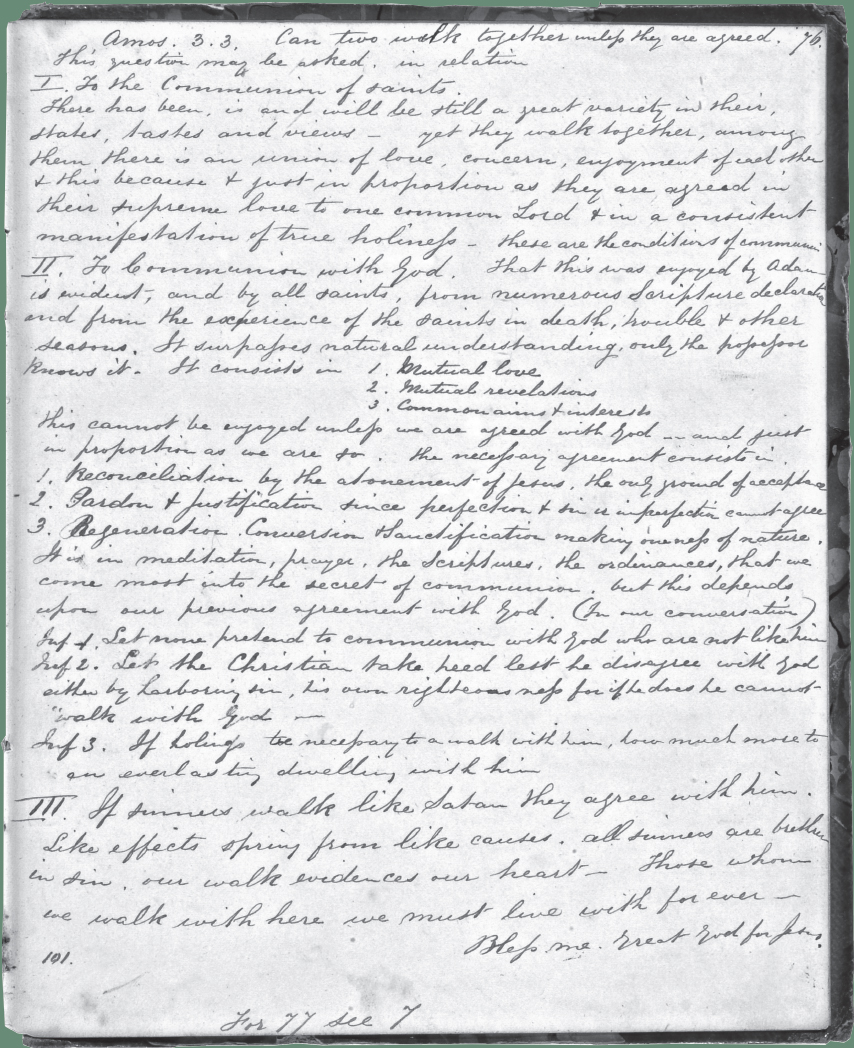 Amos. 3.3. Can two walk together unless they are agreed. 76.
This question may be asked. in relation
I. To the Communion of saints.
There has been, is and will be still a great variety in their,
states, tastes and views – yet they walk together, among
them there is an union of love, concern, enjoyment of each other
& this because & just in proportion as they are agreed in
their supreme love to one common Lord & in a consistent
manifestation of true holiness – these are the conditions of communion
II. To Communion with God. That this was enjoyed by Adam
is evident, and by all saints, from numerous Scripture declaration
and from the experience of the saints in death, trouble & other
seasons. It surpasses natural understanding, only the possessor
knows it. It consists in 1. Mutual love
2. Mutual revelations
3. Common aims & interests
This cannot be enjoyed unless we are agreed with God – and just
in proportion as we are so. the necessary agreement consists in.
1. Reconciliation by the atonement of Jesus, the only ground of acceptance
2. Pardon & Justification since perfection & sin is imperfection cannot agree
3. Regeneration. Conversion & Sanctification making oneness of nature.
It is in meditation, prayer, the Scriptures, the ordinances, that we
come most into the secret of communion, but this depends
upon our previous agreement with God. (In our conversation)
Inf 1. Let none pretend to communion with God who are not like him
Inf 2. Let the Christian take heed lest he disagree with God
either by harboring sin, his own righteousness for if he does he cannot
"walk with God –
Inf 3. If holiness be necessary to a walk with him, how much more to
an everlasting dwelling with him
III. If sinners walk like Satan they agree with him.
Like effects spring from like causes. all sinners are brethren
in sin. our walk evidences our heart – Those whom
we walk with here we must live with for ever –
Bless me. Great God for Jesus.
101.
For 77 see 7